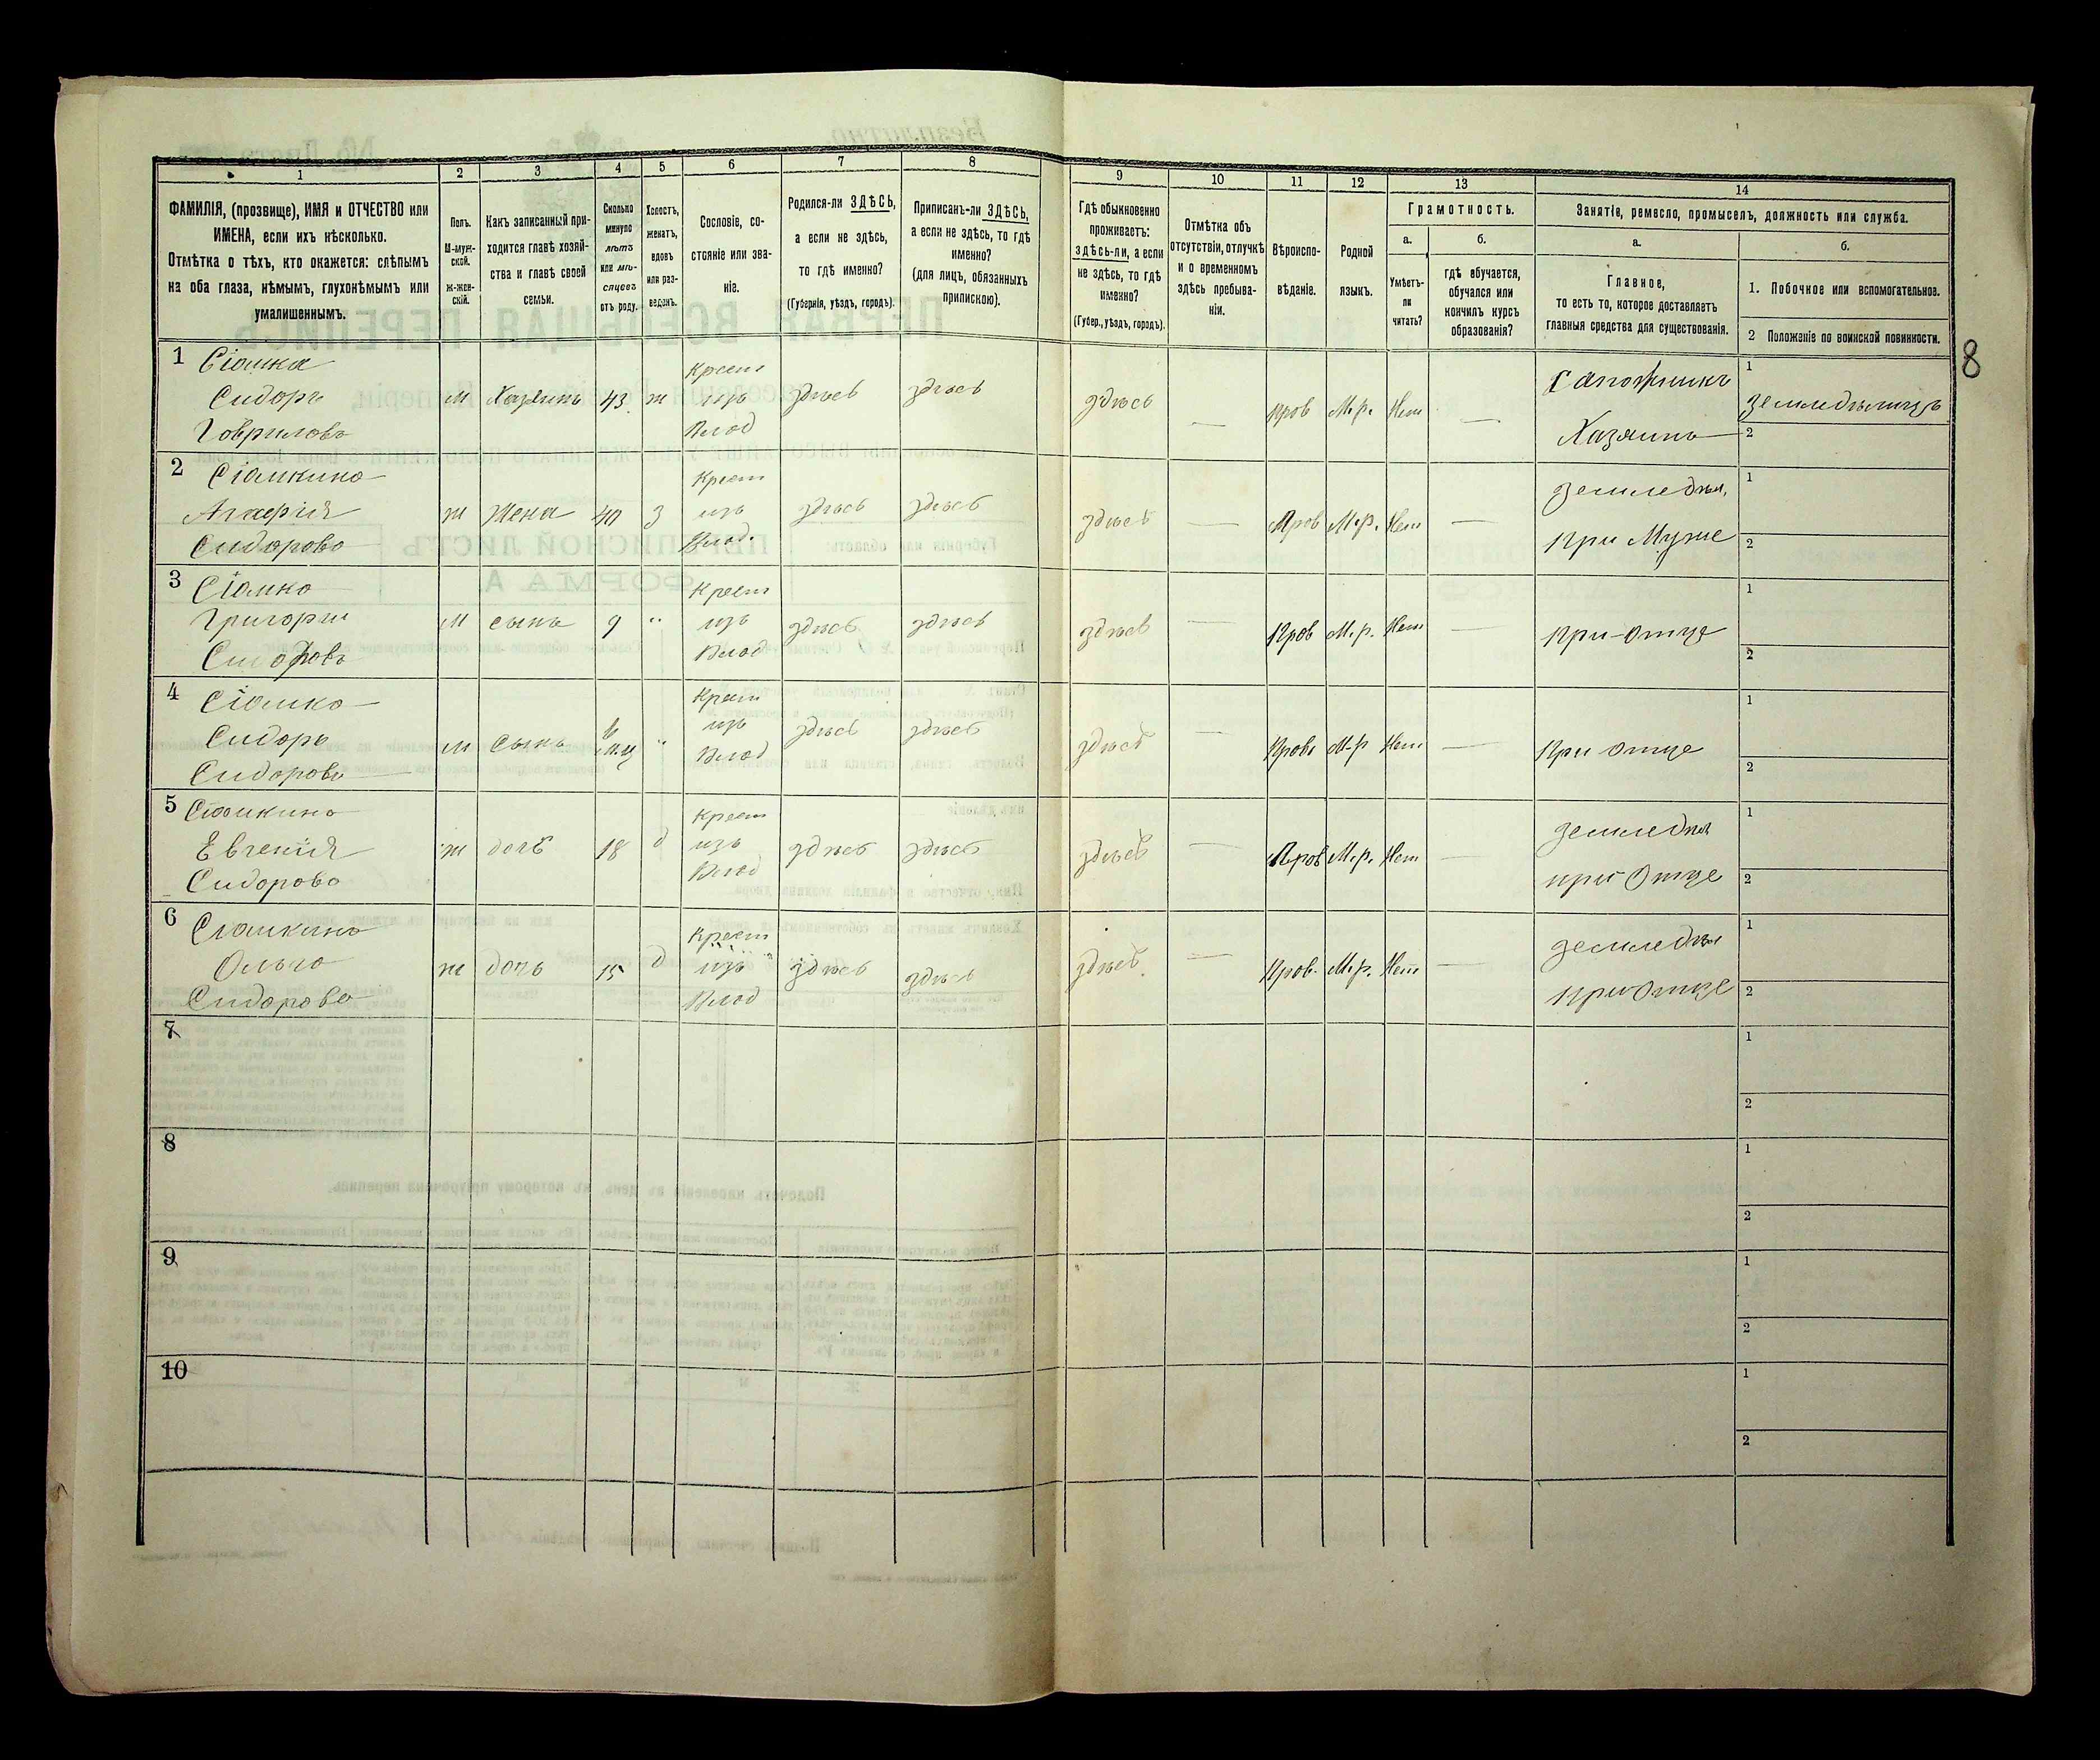 1 2 3 4 5 6 7 8 9 10 11 12 13 14
ФАМИЛІЯ, (прозвище), ИМЯ и ОТЧЕСТВО или
ИМЕНА, если ихъ нѣсколько.
Отмѣтка о тѣхъ, кто окажется: слѣпымъ
на оба глаза, нѣмымъ, глухонѣмымъ или
умалишеннымъ.
Полъ.
М-муж-
ской.
ж-жен-
скій.
Какъ записанный при-
ходится главѣ хозяй-
ства и главѣ своей
семьи.
Сколько
минуло
лѣтъ
или мѣ-
сяцевъ
отъ роду.
Холостъ,
женатъ,
вдовъ
или раз-
веденъ.
Сословіе, со-
стояніе или зва-
ніе.
Родился-ли ЗДѢСЬ,
а если не здѣсь,
то гдѣ именно?
(Губернія, уѣздъ, городъ).
Приписанъ-ли ЗДѢСЬ,
а если не здѣсь, то гдѣ
именно?
(для лицъ, обязанныхъ
припискою).
Гдѣ обыкновенно
проживаетъ:
здѣсь-ли, а если
не здѣсь, то гдѣ
именно?
(Губер., уѣздъ, городъ).
Отмѣтка объ
отсутствіи, отлучкѣ
и о временномъ
здѣсь пребыва-
ніи.
Вѣроиспо-
вѣданіе.
Родной
языкъ.
Грамотность.
а.
Умѣетъ-
ли
читать?
б.
гдѣ обучается,
обучался или
кончилъ курсъ
образованія?
Занятіе, ремесло, промыселъ, должность или служба.
а.
Главное,
то есть то, которое доставляетъ
главныя средства для существованія.
б.
1. Побочное или вспомогательное.
2 Положеніе по воинской повинности.
8
1 Сіомка
Сидоръ
Говриловъ
м Хазяинъ 43 ж
Крест
изъ
Влад
здѣсь здѣсь здѣсь — Прав М.р. Нет —
Сапожникъ
Хазяинъ
1 земледѣлицъ
2
2 Сіомкина
Агафія
Сидорово
ж Жена 40 З
Крест
изъ
Влад.
здѣсь здѣсь здѣсь — Прав М.р. Нет —
земледѣл,
при Муже
1
2
3 Сіомко
Григорій
Сидоровъ
м сынъ 9 "
Крест
изъ
Влад
здѣсь здѣсь здѣсь — Прав М.р. Нет —
при-отце
1
2
4 Сіомко
Сидоръ
Сидорово
м Сынъ "
Крест
изъ
Влад
здѣсь здѣсь здѣсь — Прав М.р Нет —
при отце
1
2
5 Сіомкино
Евгенія
Сидорово
ж дочь 18 д
Крест
изъ
Влад
здѣсь здѣсь здѣсь — Прав М.р. Нет —
земледѣл
при Отце
1
2
6 Сіомкино
Ольго
Сидорово
ж дочь 15 д
Крест
изъ
Влад
здѣсь здѣсь здѣсь — Прав. М.р. Нет —
земледѣл
при Отце
1
2
7
1
2
8
1
2
9
1
2
10
1
2